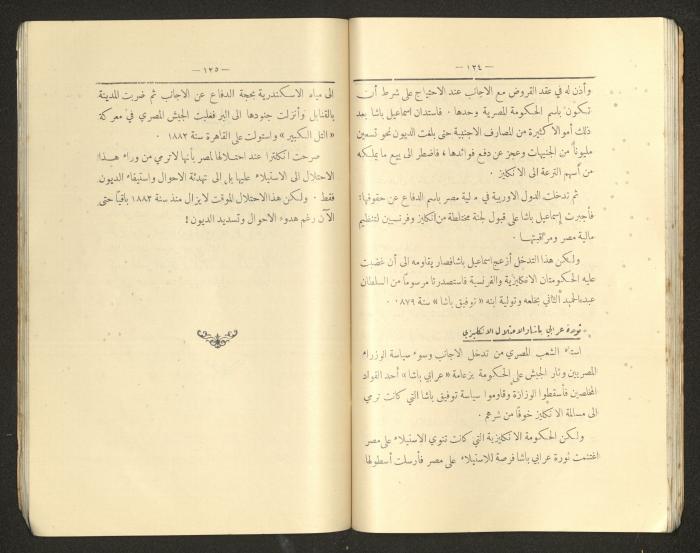 — ١٢٤ —
وأذن له في عقد القروض مع الاجانب عند الاحتياج على شرط أنت
تكون باسم الحكومة المصرية وحدها . فاستدان اسماعيل باشا بعد
ذلك أموالاً كثيرة من المصارف الاجنبية حتى بلغت الديون نحو تسعين
مليوناً من الجنيهات وعجز عن دفع فوائدها ، فاضطر الى بيع ما يملكه
من أسهم الترعة الى الانكليز .
ثم تدخلت الدول الاوربية في مالية مصر باسم الدفاع عن حقوقها :
فأجبرت إسماعيل باشا على قبول لجنة مختلطة من انكليز وفرنسيين لتنظيم
مالية مصر ومراقبتها .
ولكن هذا التدخل أزعج اسماعيل باشا فصار يقاومه الى أن غضبت
عليه الحكومتان الانكليزية والفرنسية فاستصدرتا مرسوماً من السلطان
عبد الحميد الثاني بخلعه وتولية ابنه « توفيق باشا » سنة ١٨٧٩ .
ثورة عرابي باشا والاحتلال الانكليزي
استاء الشعب المصري من تدخل الاجانب وسوء سياسة الوزراء
المصريين وثار الجيش على الحكومة بزعامة « عرابي باشا » أحد القواد
المخلصين فأسقطوا الوزارة وقاوموا سياسة توفيق باشا التي كانت ترمي
الى مسالمة الانكليز خوفاً من شرهم .
ولكن الحكومة الانكليزية التي كانت تنوي الاستيلاء على مصر
اغتنمت ثورة عرابي باشا فرصة للاستيلاء على مصر فأرسلت أسطولها
— ١٢٥ —
الى مياه الاسكندرية بحجة الدفاع عن الاجانب ثم ضربت المدينة
بالقنابل وأنزلت جنودها الى البر فغلبت الجيش المصري في معركة
« التل الكبير » واستولت على القاهرة سنة ١٨٨٢ .
صرحت انكلترا عند احتلالها لمصر بأنها لا ترمي من وراء هذا
الاحتلال الى الاستيلاء عليها بل الى تهدئة الاحوال واستيفاء الديون
فقط . ولكن هذا الاحتلال الموقت لا يزال منذ سنة ١٨٨٢ باقياً حتى
الآن رغم هدوء الاحوال وتسديد الديون !